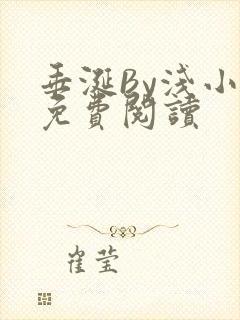 垂涎By淺小
免費閱讀
崔莹